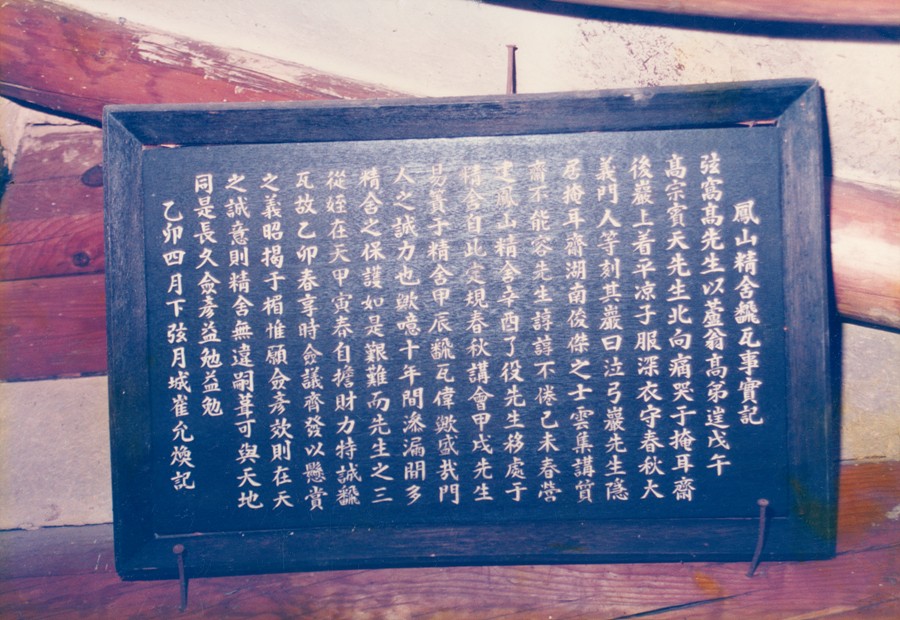 鳳山精舍飜瓦事實記
弦窩高先生以蘆翁高弟逞戊午
高宗賓天先生北向痛哭于掩耳齋
後巖上着早凉子服深衣守春秋大
義門人等刻其巖曰泣弓巖先生隱
居掩耳齋湖南俊傑之士雲集講質
齋不能容先生諄諄不倦己未春營
建鳳山精舍辛酉了役先生移處于
精舍自此定規春秋講會甲戌先生
易簀于精舍甲辰飜瓦偉歟盛哉門
人之誠力也歟噫十年間滲漏開多
精舍之保護如是艱難而先生之三
從姪在天甲寅春自擔財力特誠飜
瓦故乙卯春享時僉議齊發以懸賞
之義昭揭于楣惟願僉彥效則在天
之誠意則精舍無違嗣葺可與天地
同是長久僉彥益勉益勉
乙卯四月下弦月城崔允煥記